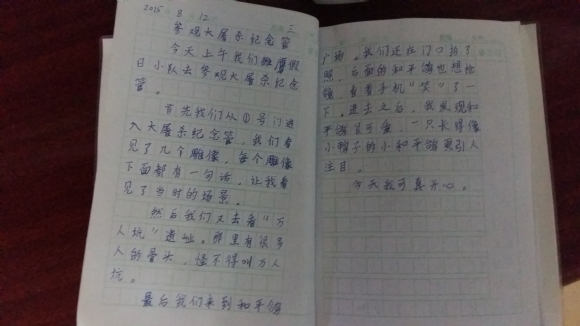 2015 8 12 三
参观大屠杀纪念管
今天上午我们雏鹰假
日小队去参观大屠杀纪念
管。
首先我们从①号门进
入大屠杀纪念管,我们看
见了几个雕像,每个雕像
下面都有一句话,让我看
见了当时的场景。
然后我们又去看“万
人坑”遗址。那里有很多
人的骨头,怪不得叫万人
坑。
最后我们来到和平鸽
广场。我们还在门口拍了
照,后面的和平鸽也想抢
镜,看着手机“笑”了一
下。进去之后,我发现和
平鸽真可爱,一只长得像
小鸭子的小和平鸽更引人
注目。
今天我可真开心。